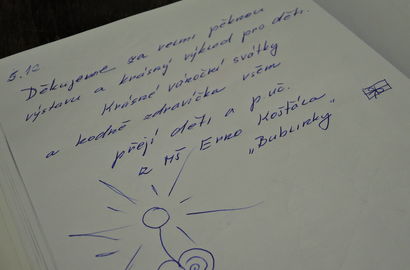 5.12
Děkujeme za velmi pěknou
výstavu a krásný výklad pro děti.
Krásné vánoční svátky
a hodně zdravíčka všem
přejí děti a p. uč.
z MŠ Erno Košťála
"Bublinky"